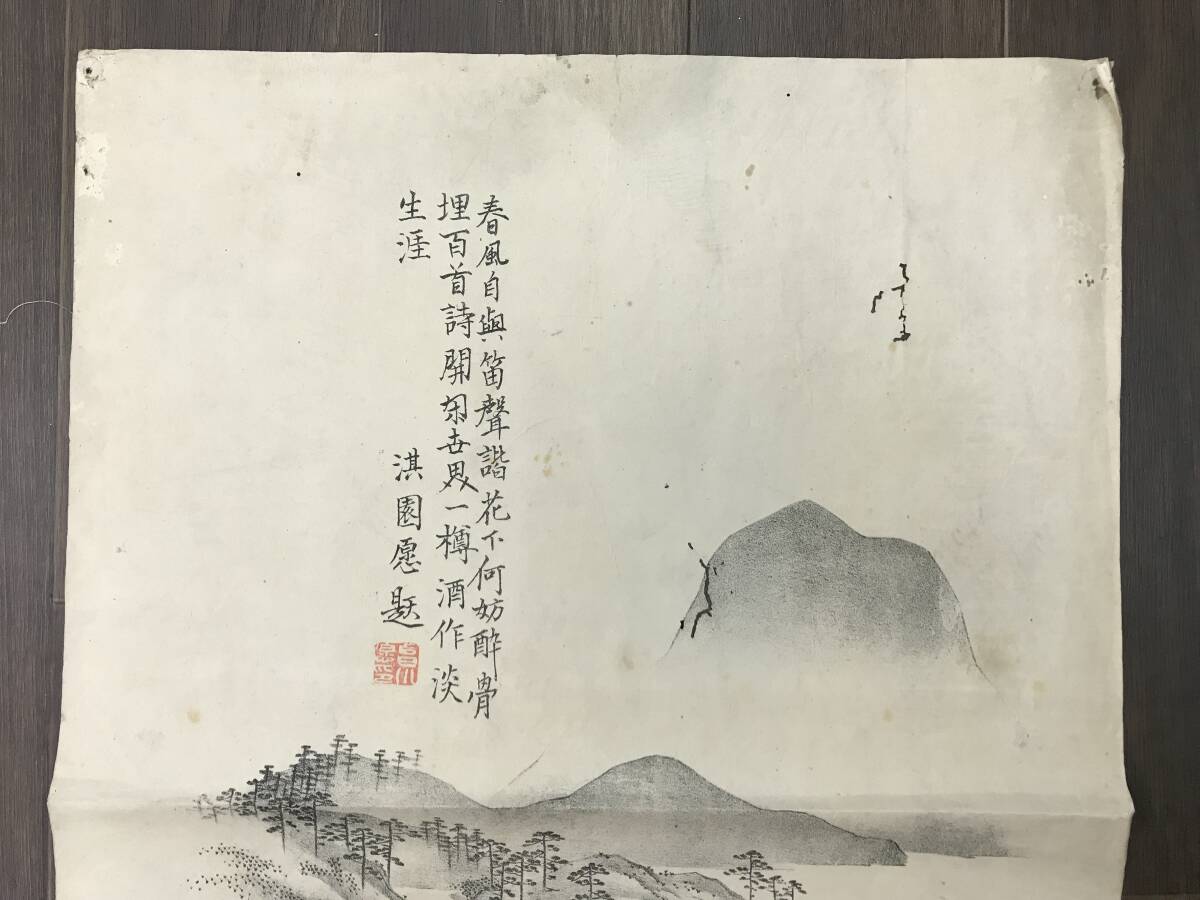 春風自與笛聲諧花下何妨醉骨
埋百首詩開閑世界一樽酒作淡
生涯
淇園愿題